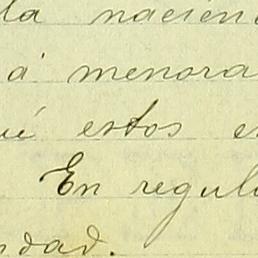 la nacien
a menora
ué estos e
En regul
ndad.